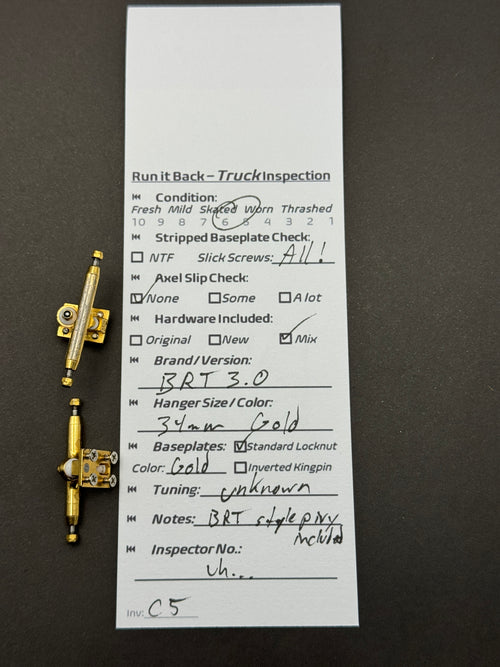 Run it Back – Truck Inspection
Condition:
Fresh Mild Skated Worn Thrashed
10 9 8 7 6 5 4 3 2 1
Stripped Baseplate Check:
NTF Slick Screws: All!
Axel Slip Check:
None Some A lot
Hardware Included:
Original New Mix
Brand/Version:
BRT 3.0
Hanger Size/Color:
34mm Gold
Baseplates: Standard Locknut
Color: Gold Inverted Kingpin
Tuning: unknown
Notes: BRT style pivy
included
Inspector No.:
Uh...
Inv: C5